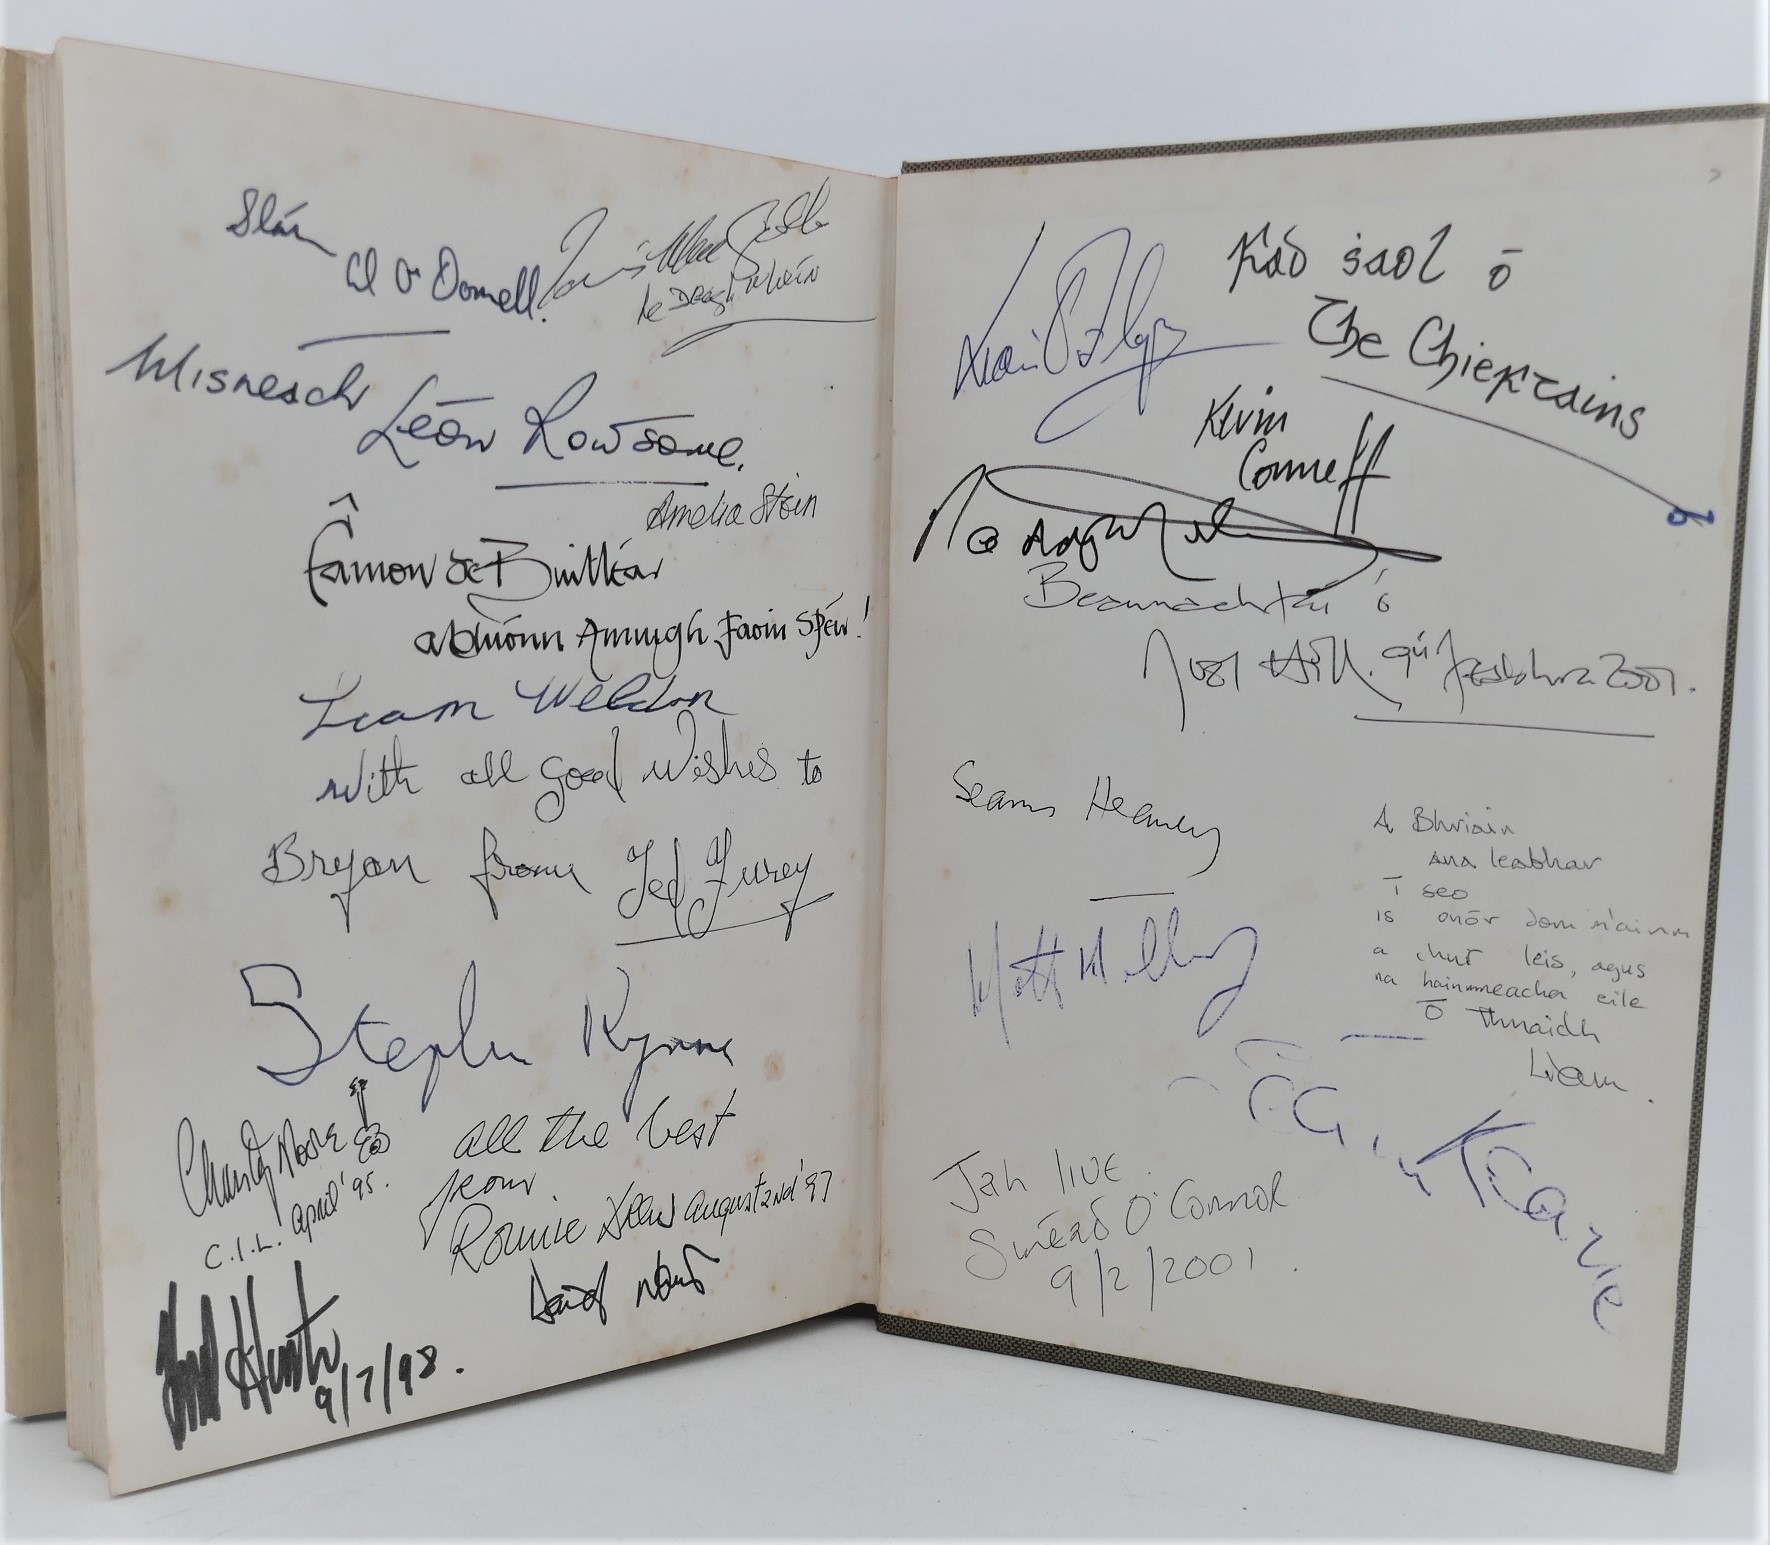 Slán
Al O'Donnell.
le Deagh mhéin
Misneach
Léon Rowsome.
Amelia Stein
Éamon de Buitléar
Amuigh Faoin Spéir!
Liam Weldon
With all good wishes to
Bryan from Ted Furey
Stephen Rynne
Christy Moore
C.I.L. April '95.
all the best
from
Ronnie Drew August 2nd '97
David
9/7/98.
Fad saol ó
The Chieftains
Kevin
Conneff
Beannachtaí ó
Noel Hill. 9ú Feabhra 2001.
Seamus Heaney
A Bhriain
Ana leabhar
í seo
is onór dom m'ainm
a chur leis, agus
na hainmneacha eile
ó Thuaidh
Liam
Matt Molloy
Jah live
Sinéad O'Connor
9/2/2001.